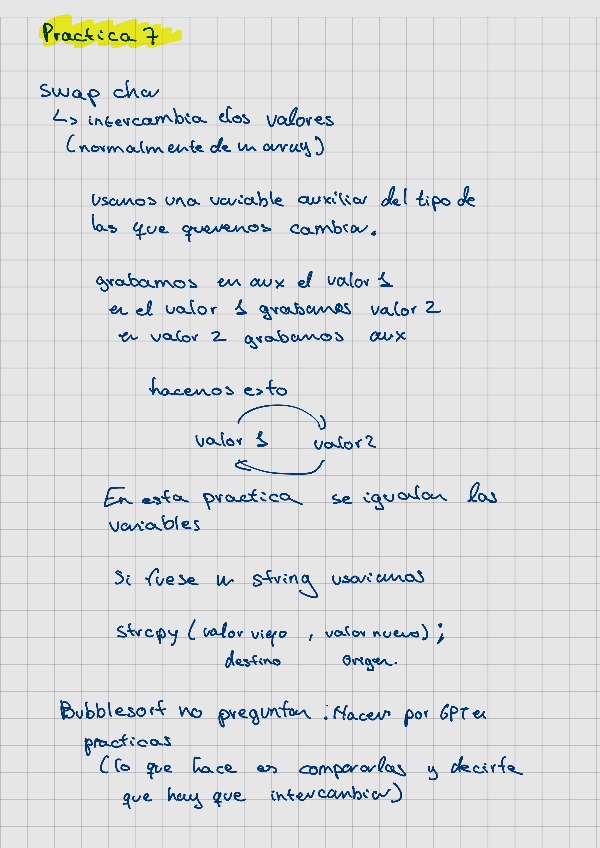 Practica 7
swap char
↳ intercambia dos valores
(normalmente de un array)
usamos una variable auxiliar del tipo de
las que queremos cambiar.
grabamos en aux el valor 1
en el valor 1 grabamos valor 2
en valor 2 grabamos aux
hacemos esto
valor 1 valor 2
En esta practica se igualan las
variables
Si fuese un string usariamos
strcpy (valor viejo , valor nuevo) ;
destino origen.
Bubblesort no preguntan : Hacer por GPT en
practicas
(lo que hace es compararlas y decirte
que hay que intercambiar)